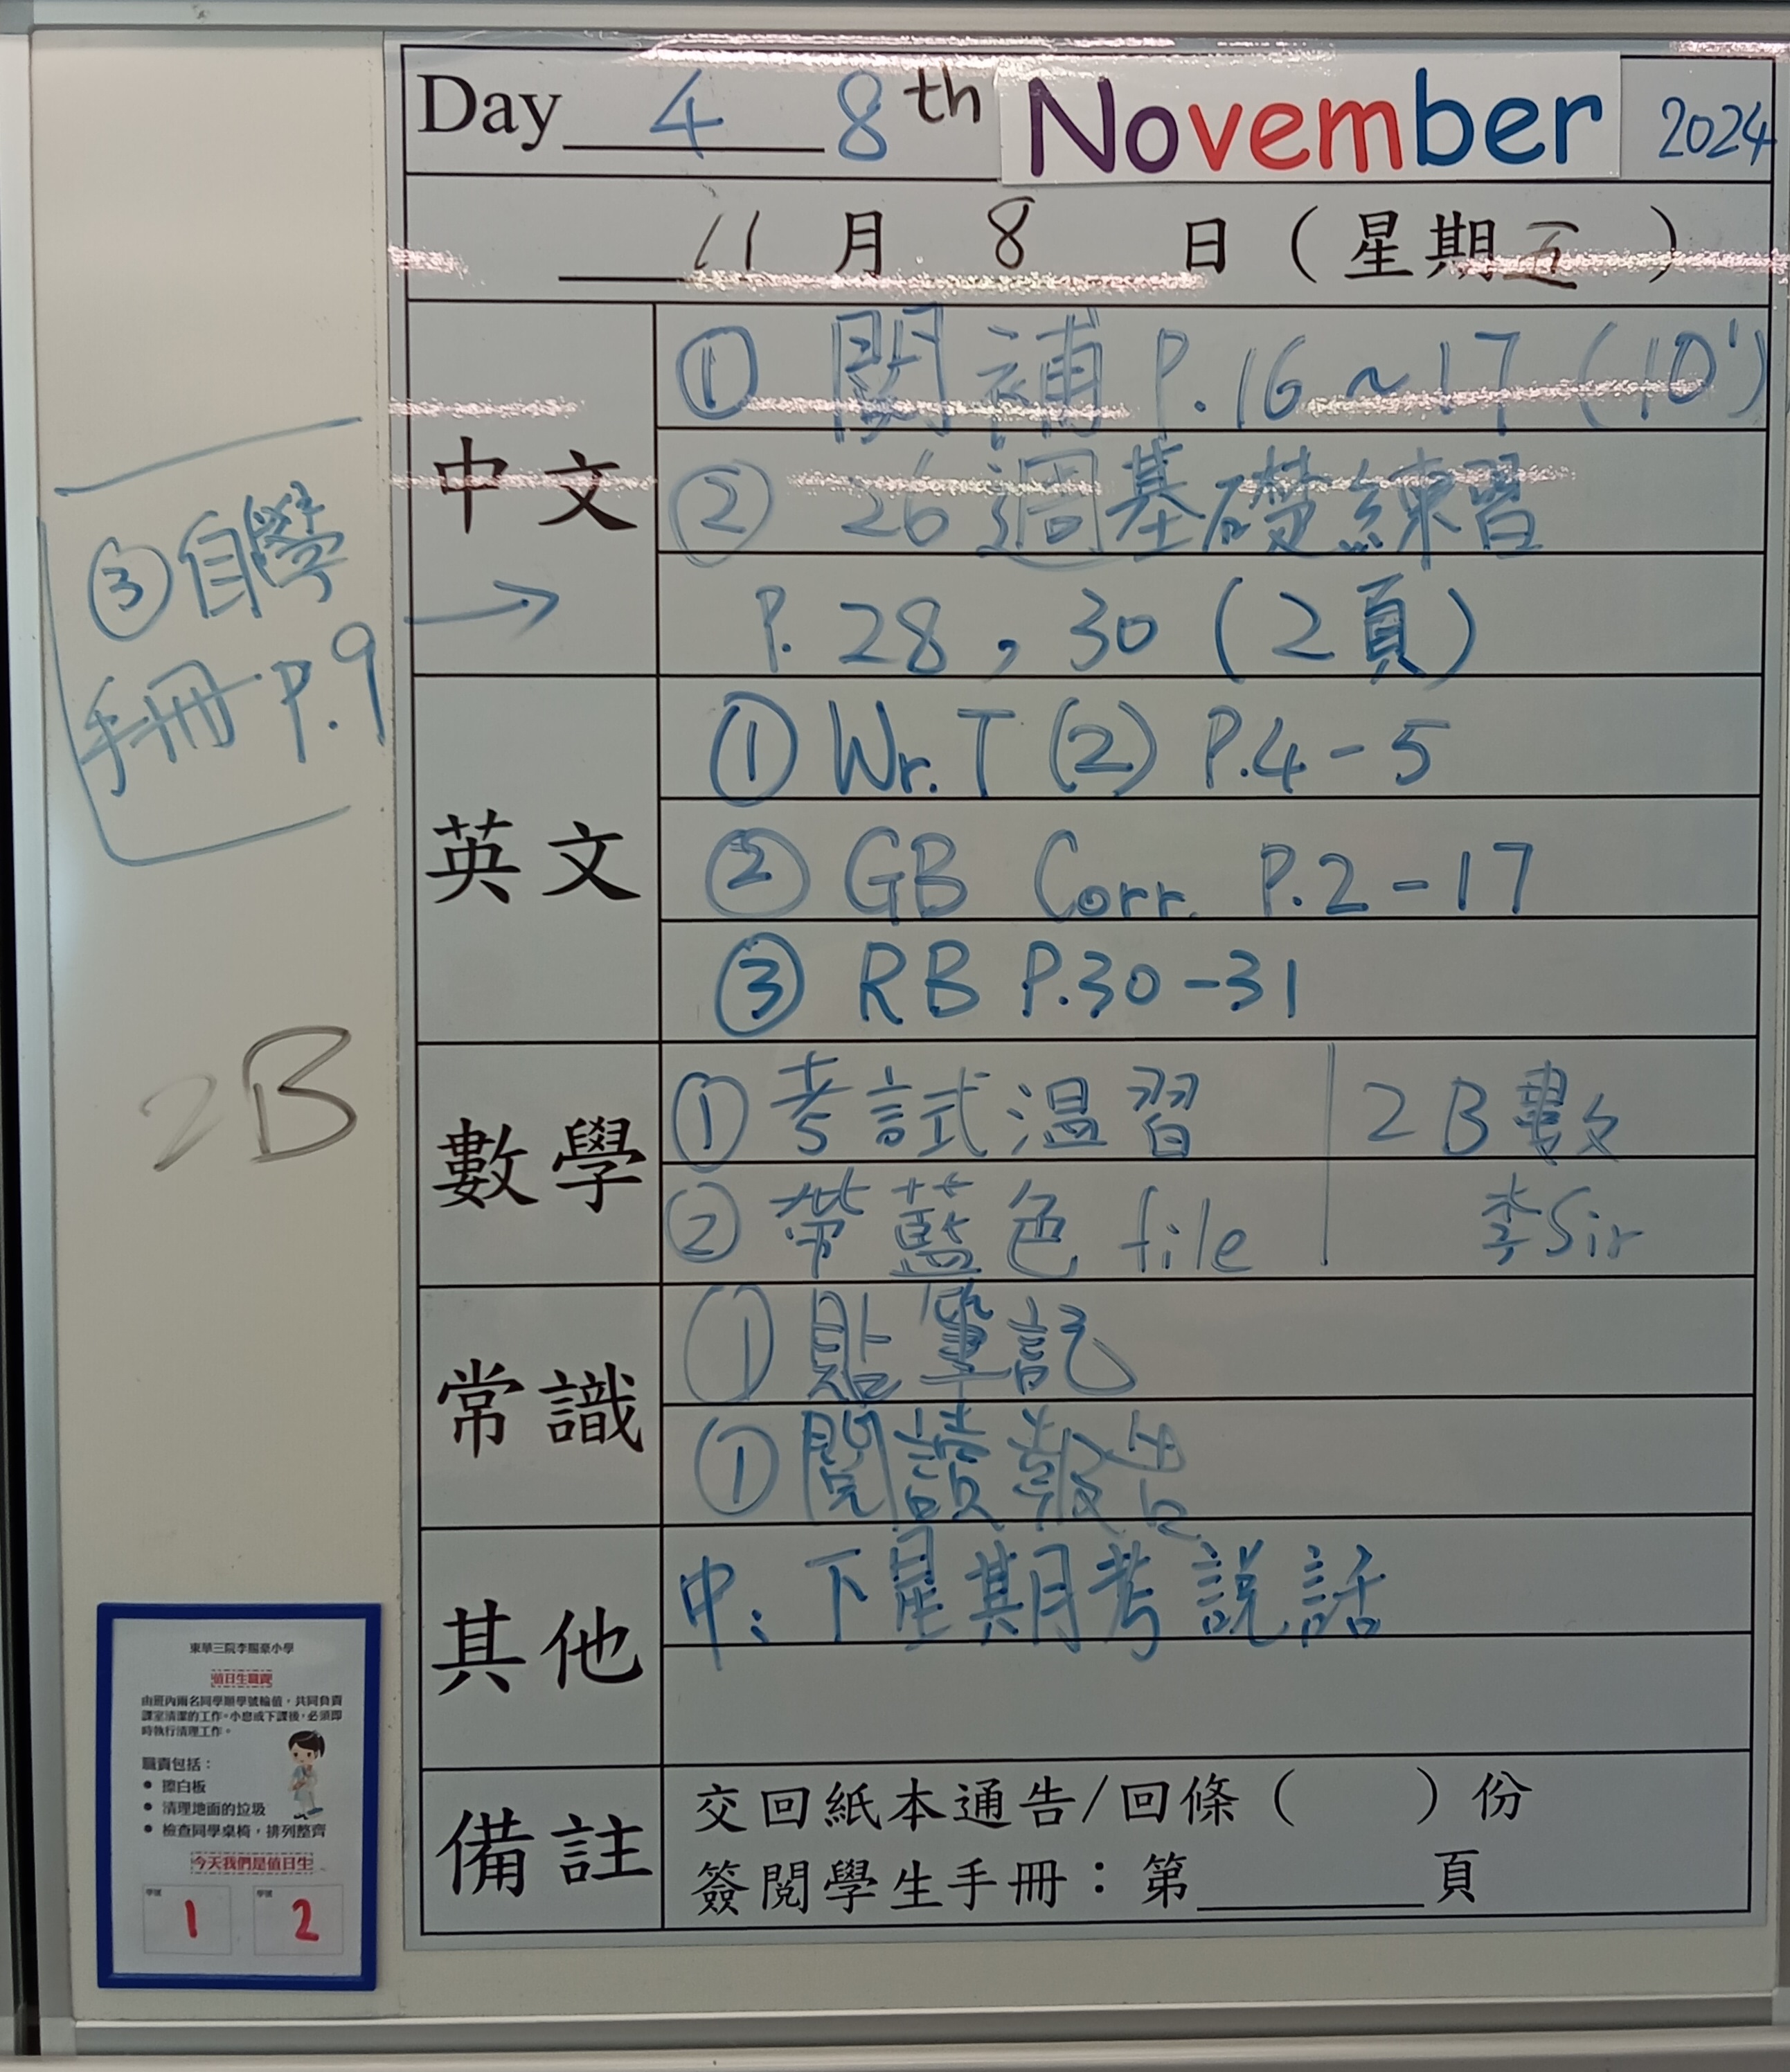 Day 4 8th November 2024
11月8日（星期五）
中文
① 閱補 P.16~17 (10')
② 26週基礎練習
P.28，30（2頁）
③自學
手冊 P.9
英文
① Wr.T (2) P.4-5
② GB Corr. P.2-17
③ RB P.30-31
2B
數學
① 考試溫習 2B數
② 帶藍色 file 李Sir
常識
① 貼筆記
① 閱讀報告
其他
中：下星期考説話
備註
交回紙本通告/回條（ ）份
簽閱學生手冊：第______頁
東華三院李賜豪小學
值日生職責
由班內兩名同學順學號輪值，共同負責
課室清潔的工作。小息或下課後，必須即
時執行清理工作。
職責包括：
● 擦白板
● 清理地面的垃圾
● 檢查同學桌椅，排列整齊
今天我們是值日生
學號 學號
1 2